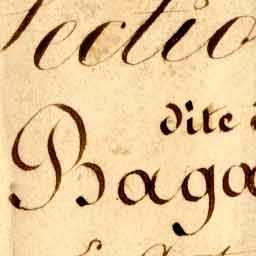 Sectio
dite
Baga